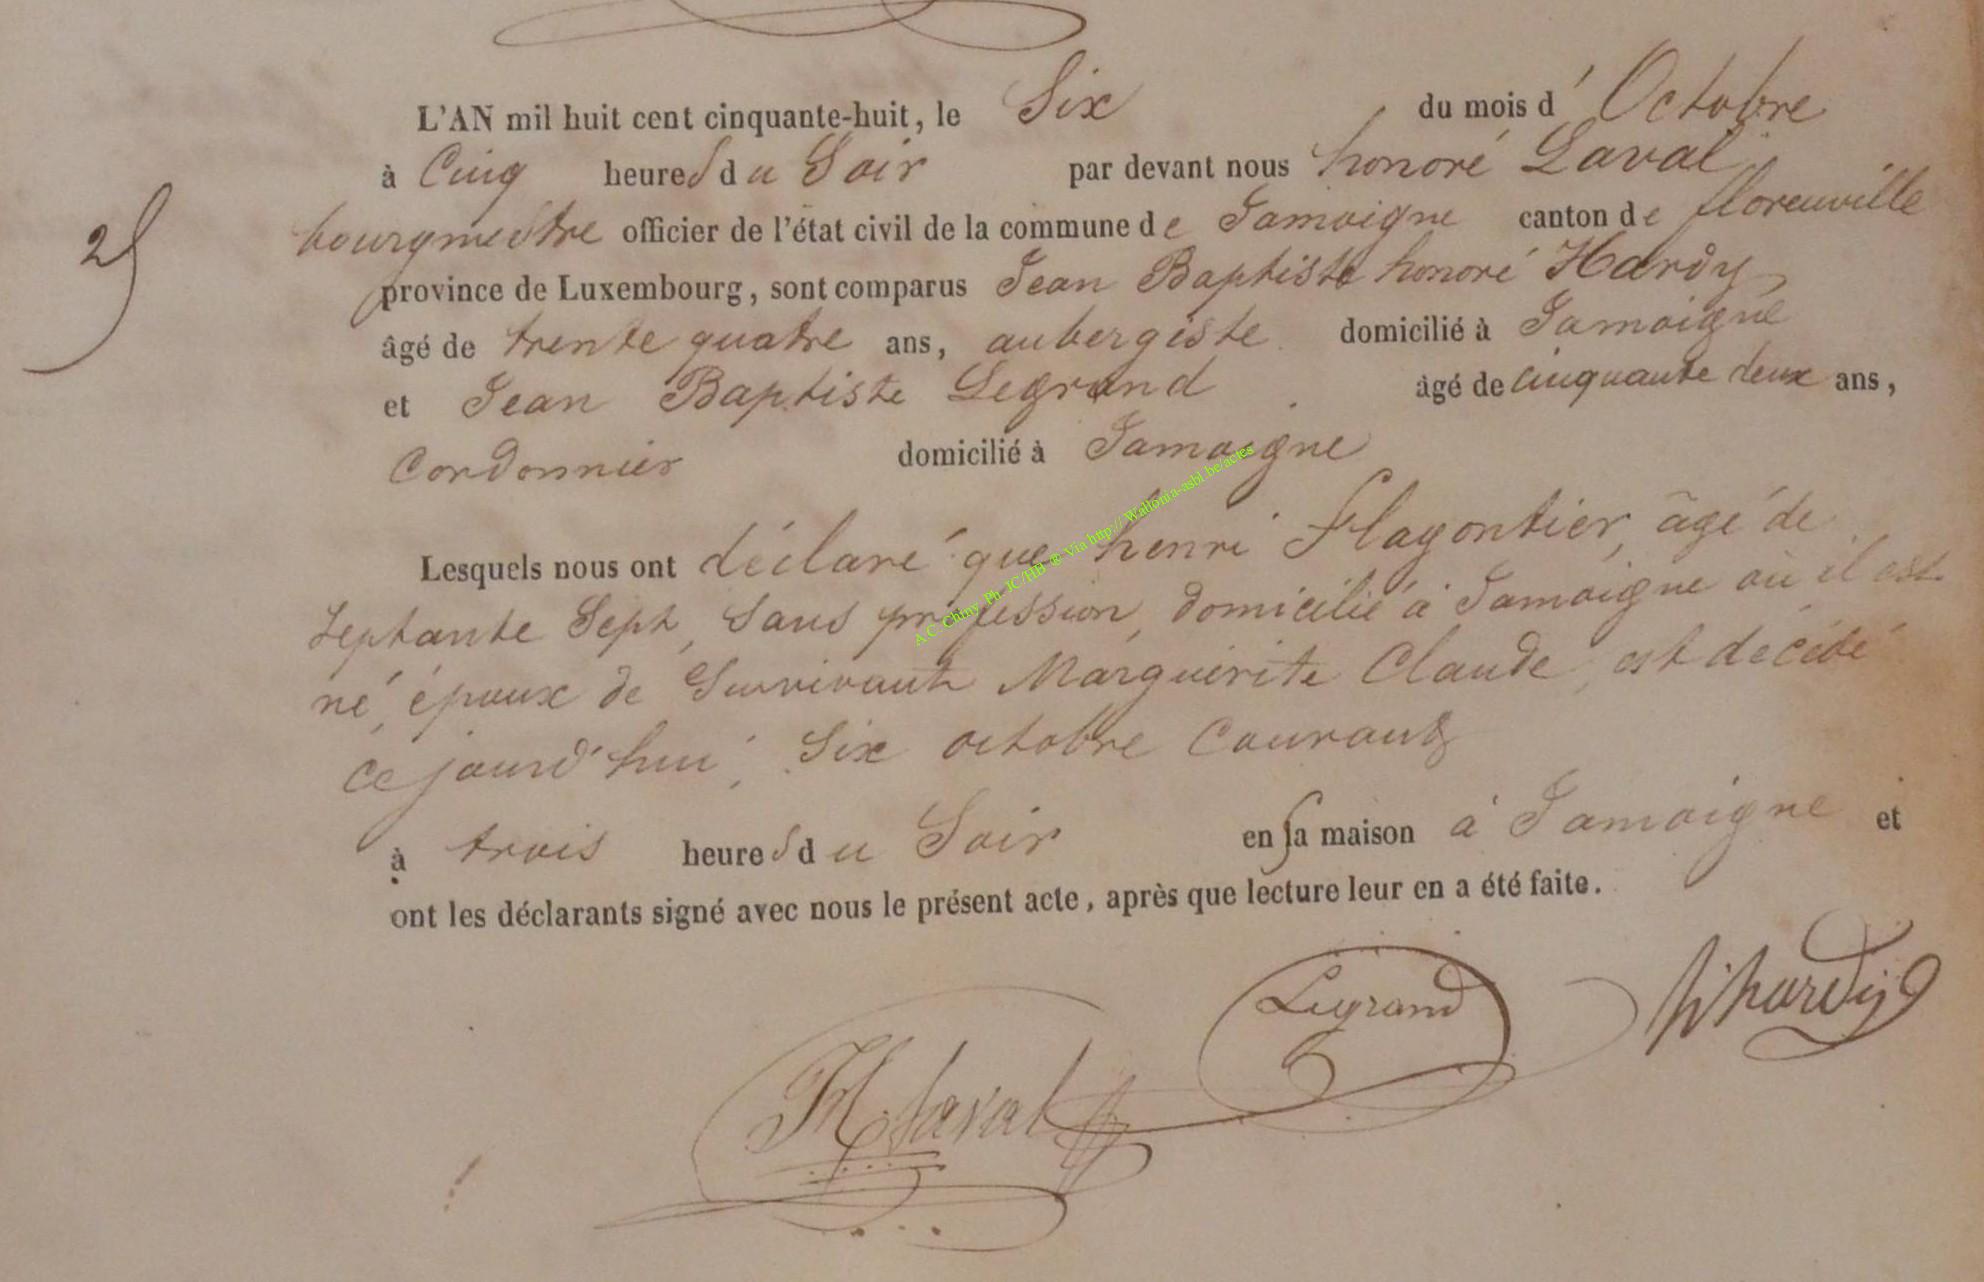 L'AN mil huit cent cinquante-huit, le Six du mois d'Octobre
à Cinq heures du Soir par devant nous honoré Laval
bourgmestre officier de l'état civil de la commune de Jamoigne canton de florenville
province de Luxembourg, sont comparus Jean Baptiste honoré Hardy
âgé de trente quatre ans, aubergiste domicilié à Jamoigne
et Jean Baptiste Legrand âgé de cinquante deux ans,
Cordonnier domicilié à Jamoigne
Lesquels nous ont déclaré que henri Flagontier, âgé de
Septante Sept, Sans profession, domicilié à Jamoigne où il est
né, époux de Survivante Marguérite Claude, est décédé
ce jourd'hui, Six octobre Courant
à trois heures du Soir en sa maison à Jamoigne et
ont les déclarants signé avec nous le présent acte, après que lecture leur en a été faite.
Legrand hardy
H Laval
A C Chiny Ph. JC/HB ® Via http:// Wallonia-asbl.be/actes